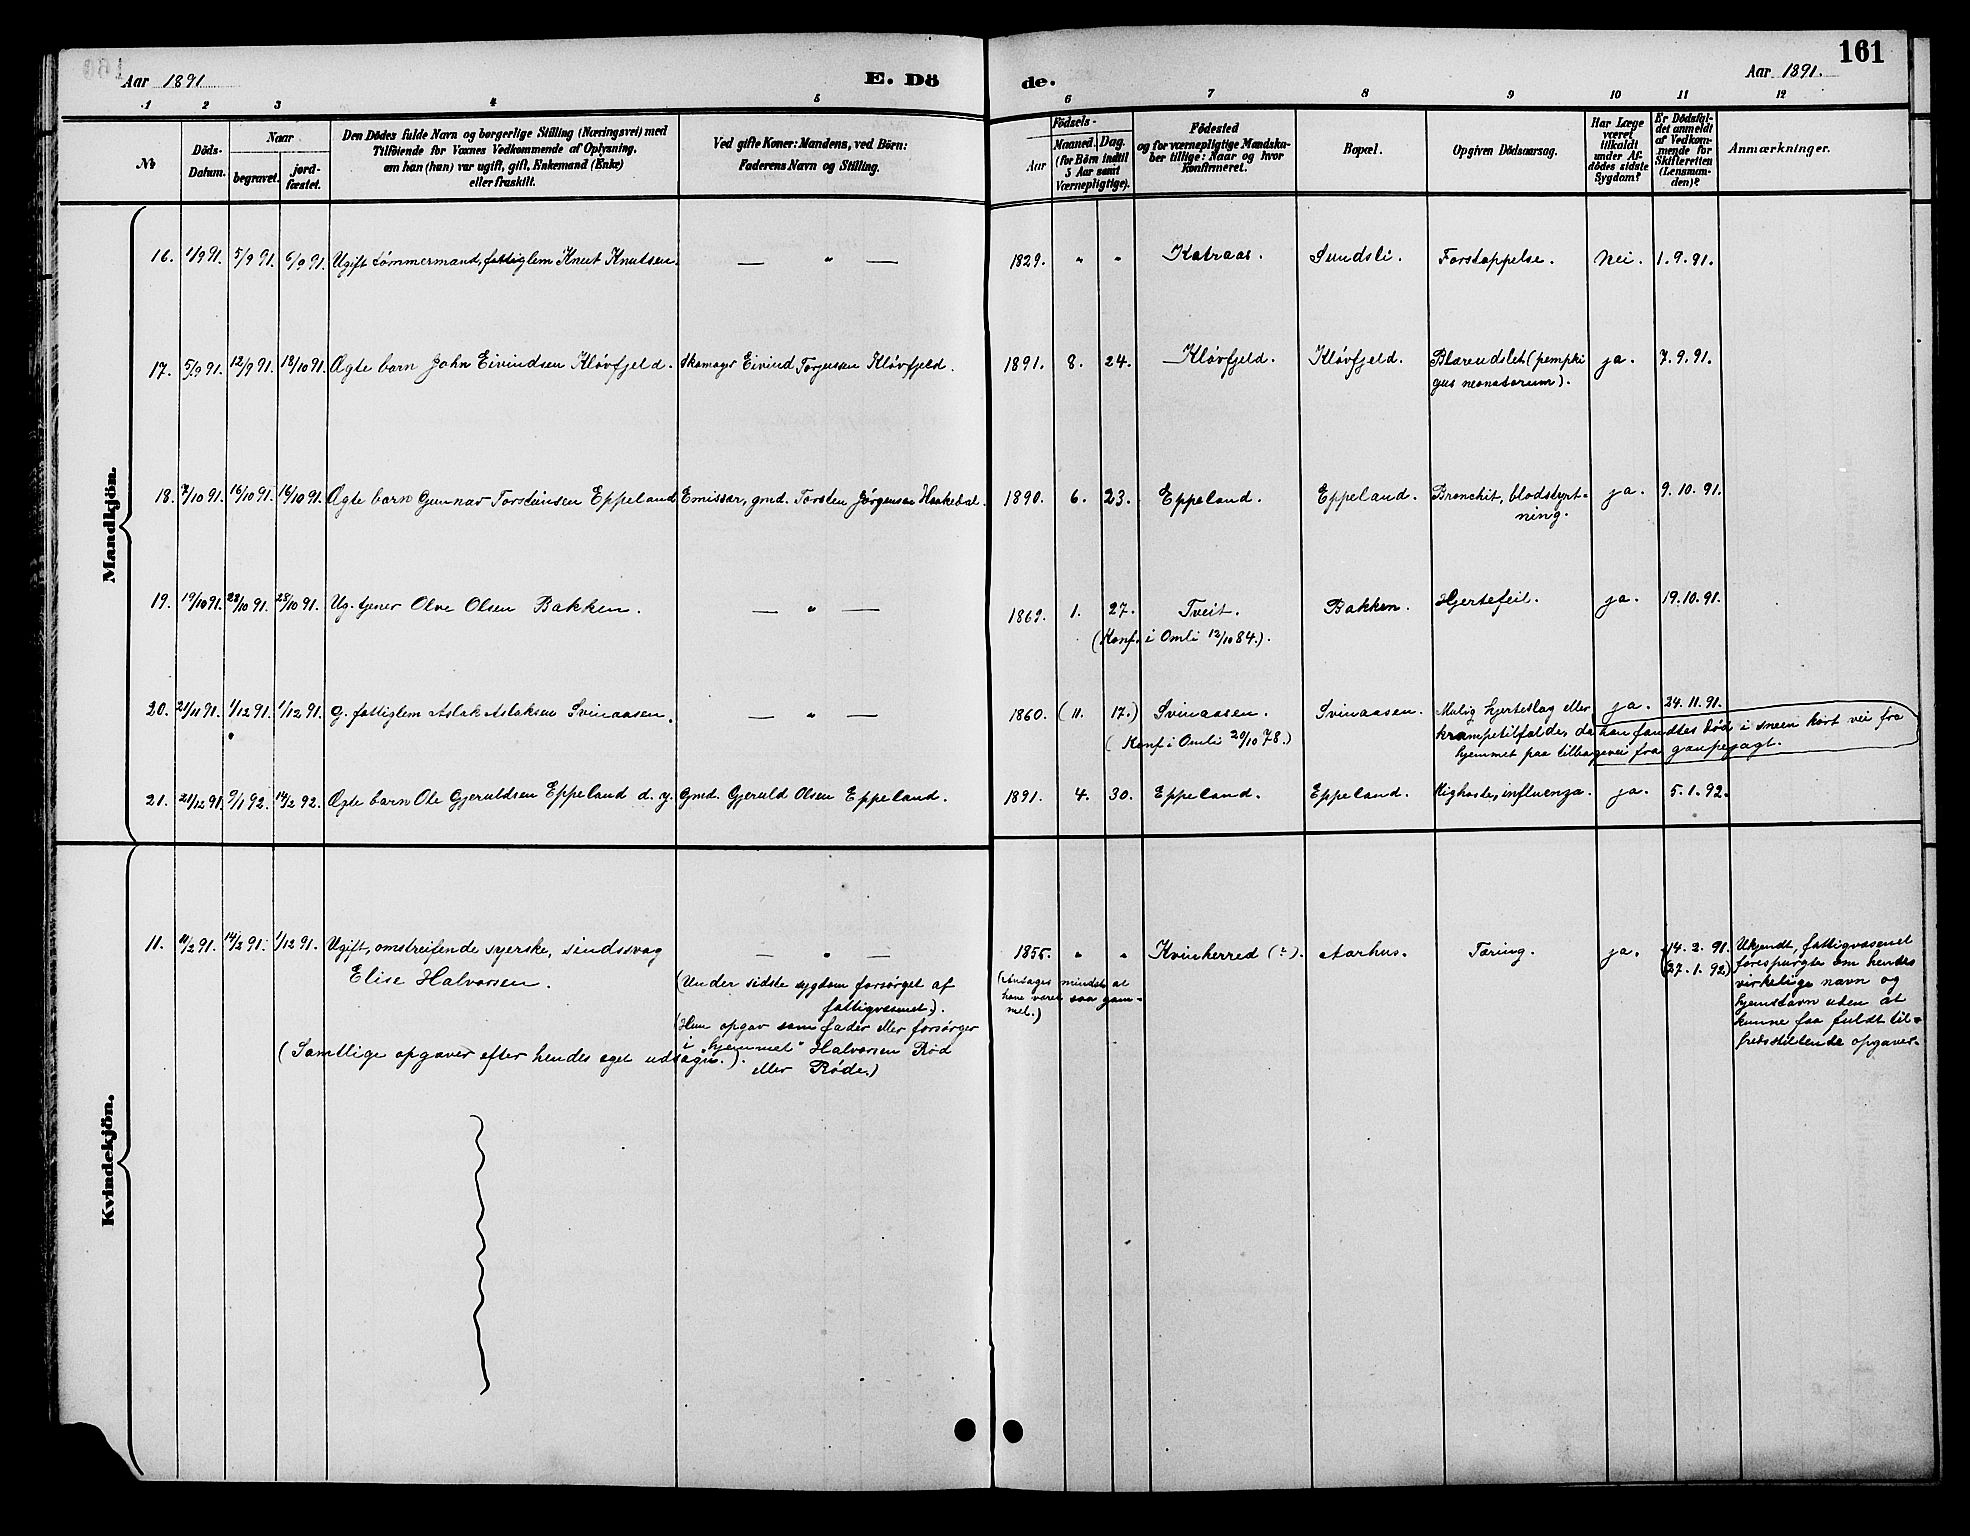 161
Aar 1891
E. Dö
de.
Aar 1891.
1 2 3 4 5 6 7 8 9 10 11 12
№
Döds-
Datum.
Naar
begravet.
jord-
fæstet.
Den Dödes fulde Navn og borgerlige Stilling (Næringsvei) med
Tilföiende for Voxnes Vedkommende af Oplysning,
om han (hun) var ugift, gift, Enkemand (Enke)
eller fraskilt.
Ved gifte Koner: Mandens, ved Börn:
Faderens Navn og Stilling.
Födsels-
Aar
Maaned. Dag.
(for Börn indtil
5 Aar samt
Værnepligtige).
Födested
og for værnepligtige Mandska-
ber tillige: Naar og hvor
Konfirmeret.
Bopæl.
Opgiven Dödsaarsag.
Har Læge
været
tilkaldt
under Af-
dödes sidste
Sygdom?
Er Dödsfal-
det anmeldt
af Vedkom-
mende for
Skifteretten
(Lensman-
den)?
Anmærkninger.
Mandkjön.
16. 1/9 91. 5/9 91. 6/9 91. Ugift tømmermand, fattiglem Knut Knutsen. — " — 1829. " " Katraas. Sundsli. Forstoppelse. Nei. 1.9.91.
17. 5/9 91. 12/9 91. 18/10 91. Ægte barn John Eivindsen Kløvfjeld. Skomager Eivind Torjussen Kløvfjeld. 1891. 8. 24. Kløvfjeld. Kløvfjeld. Blæreudslet (pemphi ja. 7.9.91.
gus neonatorum).
18. 7/10 91. 16/10 91. 16/10 91. Ægte barn Gunnar Torsteinsen Eppeland Emissær, gmd. Torsten Jørgensen Haakedal. 1890. 6. 23. Eppeland. Eppeland. Bronchit, blodstyrt- ja. 9.10.91.
ning.
19. 19/10 91. 28/10 91. 28/10 91. Ug. tjener Olve Olsen Bakken. — " — 1869. 1. 27. Tveit. Bakken. Hjertefeil. ja. 19.10.91.
(Konf. i Omli 12/10 84.).
20. 21/11 91. 1/12 91. 1/12 91. G. fattiglem Aslak Aslaksen Svinaasen. — " — 1860. (11. 17.) Svinaasen. Svinaasen. Mulig hjerteslag eller ja. 24.11.91.
(Konf. i Omli 20/10 78.) krampetilfælde, da han fandtes død i sneen kort vei fra
hjemmet paa tilbagevei fra gaupejagt.
21. 21/12 91. 9/1 92. 14/2 92. Ægte barn Ole Gjeruldsen Eppeland d. y. Gmd. Gjeruld Olsen Eppeland. 1891. 4. 30. Eppeland. Eppeland. Kighoste, influenza. ja. 5.1.92.
Kvindekjön.
11. 11/2 91. 14/2 91. 1/12 91. Ugift, omstreifende syerske, sindssvag — " — 1855. " " Kvinherred (?). Aarhus. Tæring. ja. (14.2.91. Ukjendt, fattigvæsenet
Elise Halvorsen. (Under sidste sygdom forsørget af (Antages mindst at (27.1.92) forespurgte om hendes
fattigvæsenet). have været saa gam- virkelige navn og
(Hun opgav som fader eller forsørger mel.) hjemstavn uden at
(Samtlige opgaver efter hendes eget udsagn.). i "hjemmet" Halvorsen Rød kunne faa fuldt til-
eller Røde.) fredsstillende opgaver.